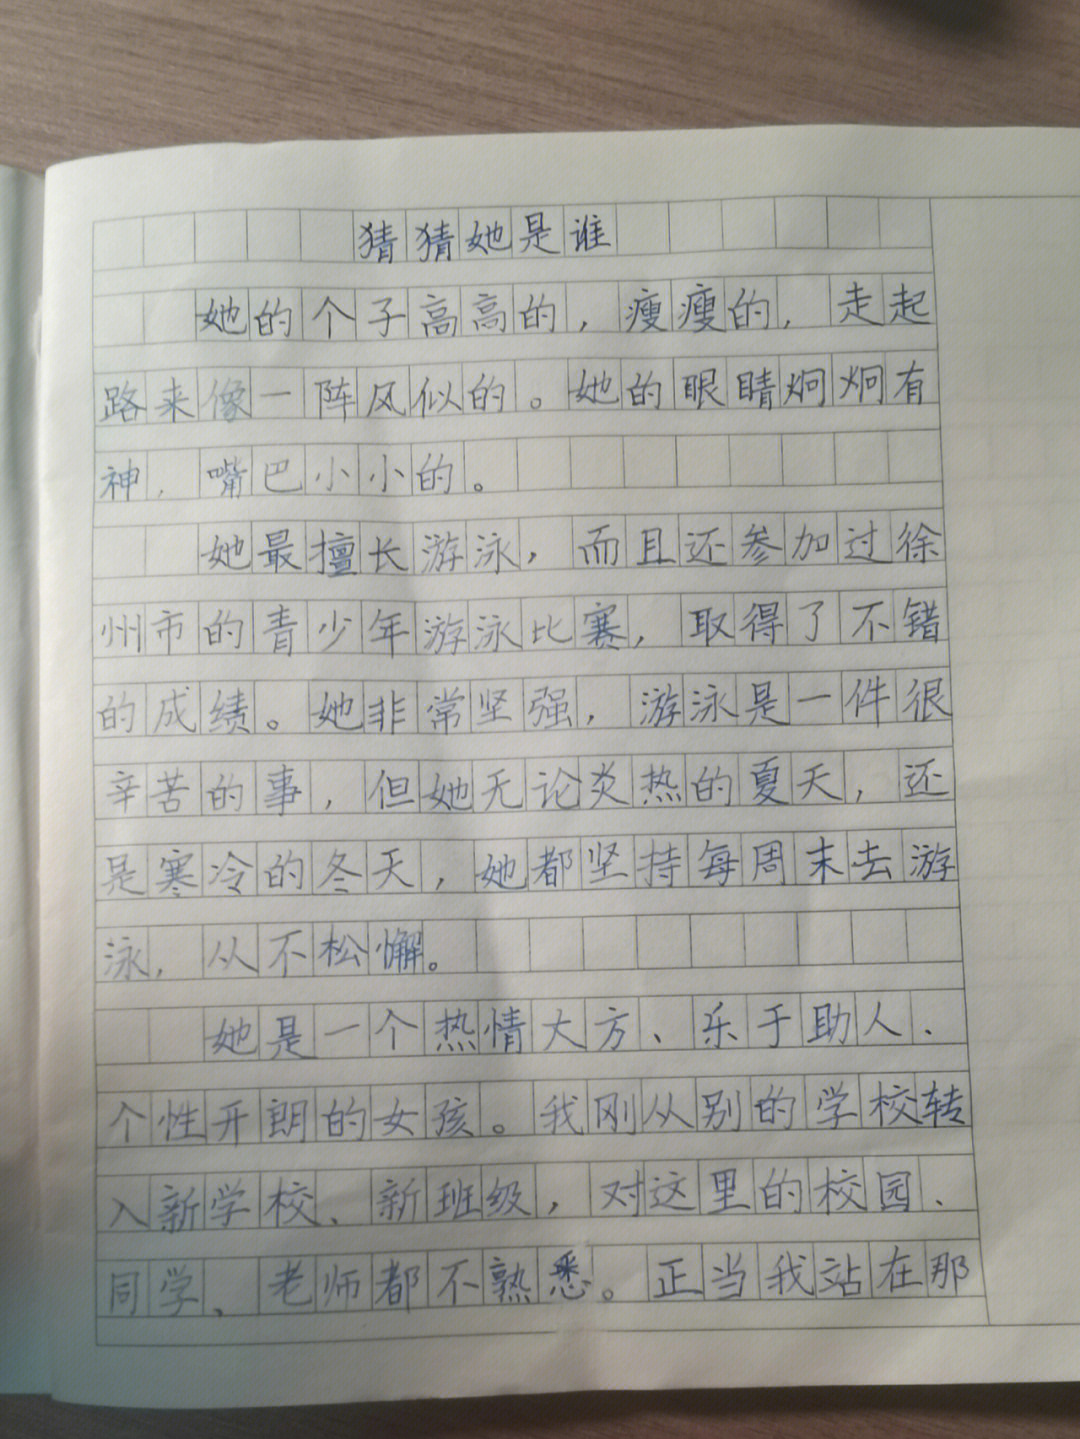 猜猜她是谁
她的个子高高的，瘦瘦的，走起
路来像一阵风似的。她的眼睛炯炯有
神，嘴巴小小的。
她最擅长游泳，而且还参加过徐
州市的青少年游泳比赛，取得了不错
的成绩。她非常坚强，游泳是一件很
辛苦的事，但她无论炎热的夏天，还
是寒冷的冬天，她都坚持每周末去游
泳，从不松懈。
她是一个热情大方、乐于助人、
个性开朗的女孩。我刚从别的学校转
入新学校、新班级，对这里的校园、
同学、老师都不熟悉。正当我站在那